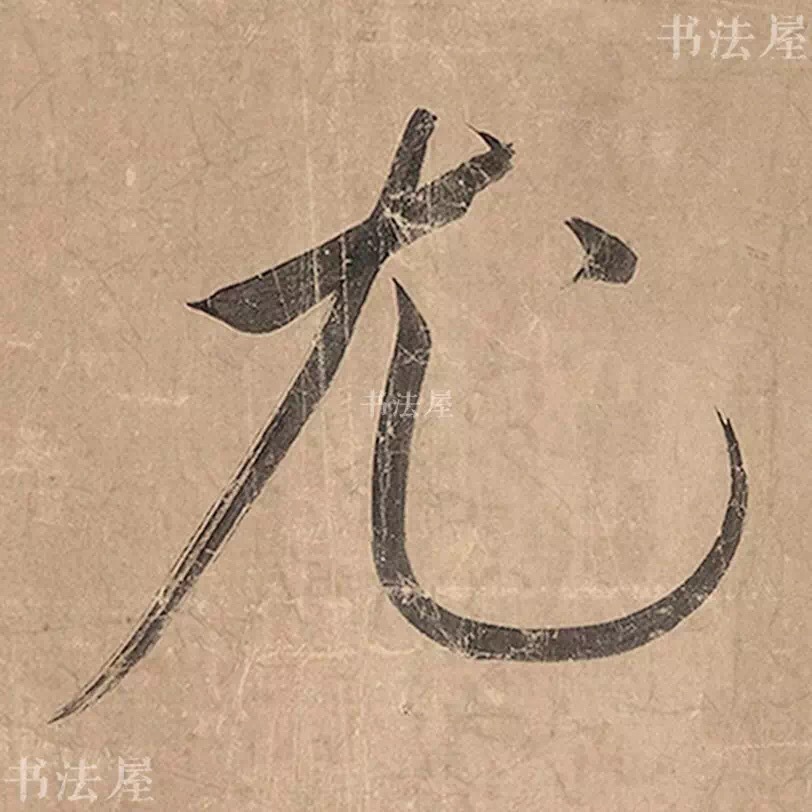 书法屋
尤
书法屋
书法屋